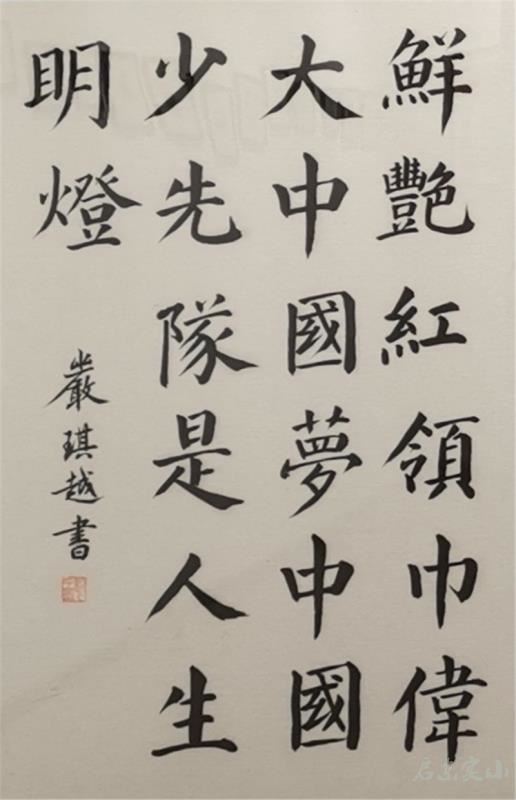 鮮艷紅領巾偉
大中國夢中國
少先隊是人生
明燈
嚴琪越書